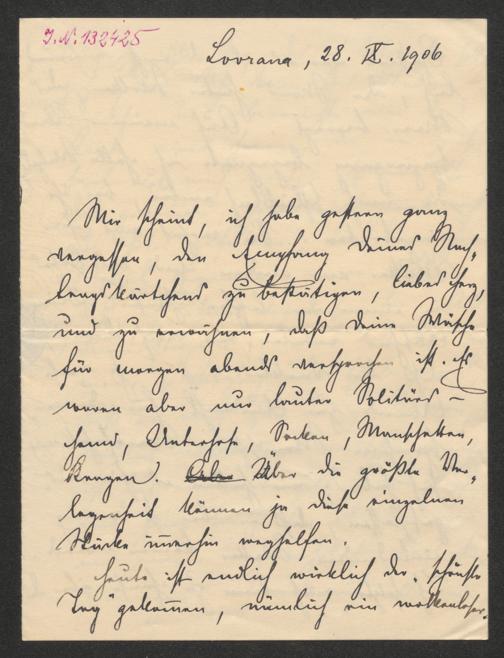 J.N. 132425
Lovrana, 28. IX. 1906
Mir scheint, ich habe gestern ganz
vergessen, den Empfang Deines Nach-
tragskärtchens zu bestätigen, liebes Herz,
und zu erwähnen, daß Deine Wäsche
für morgen abends versprochen ist. Es
waren aber nur lauter Solitärs –
Hemd, Unterhose, Socken, Manschetten,
Kragen. Über die größte Ver-
legenheit können ja diese einzelnen
Stücke immerhin weghelfen.
Heute ist endlich wirklich der „schönste
Tag" gekommen, nämlich ein wolkenloser,